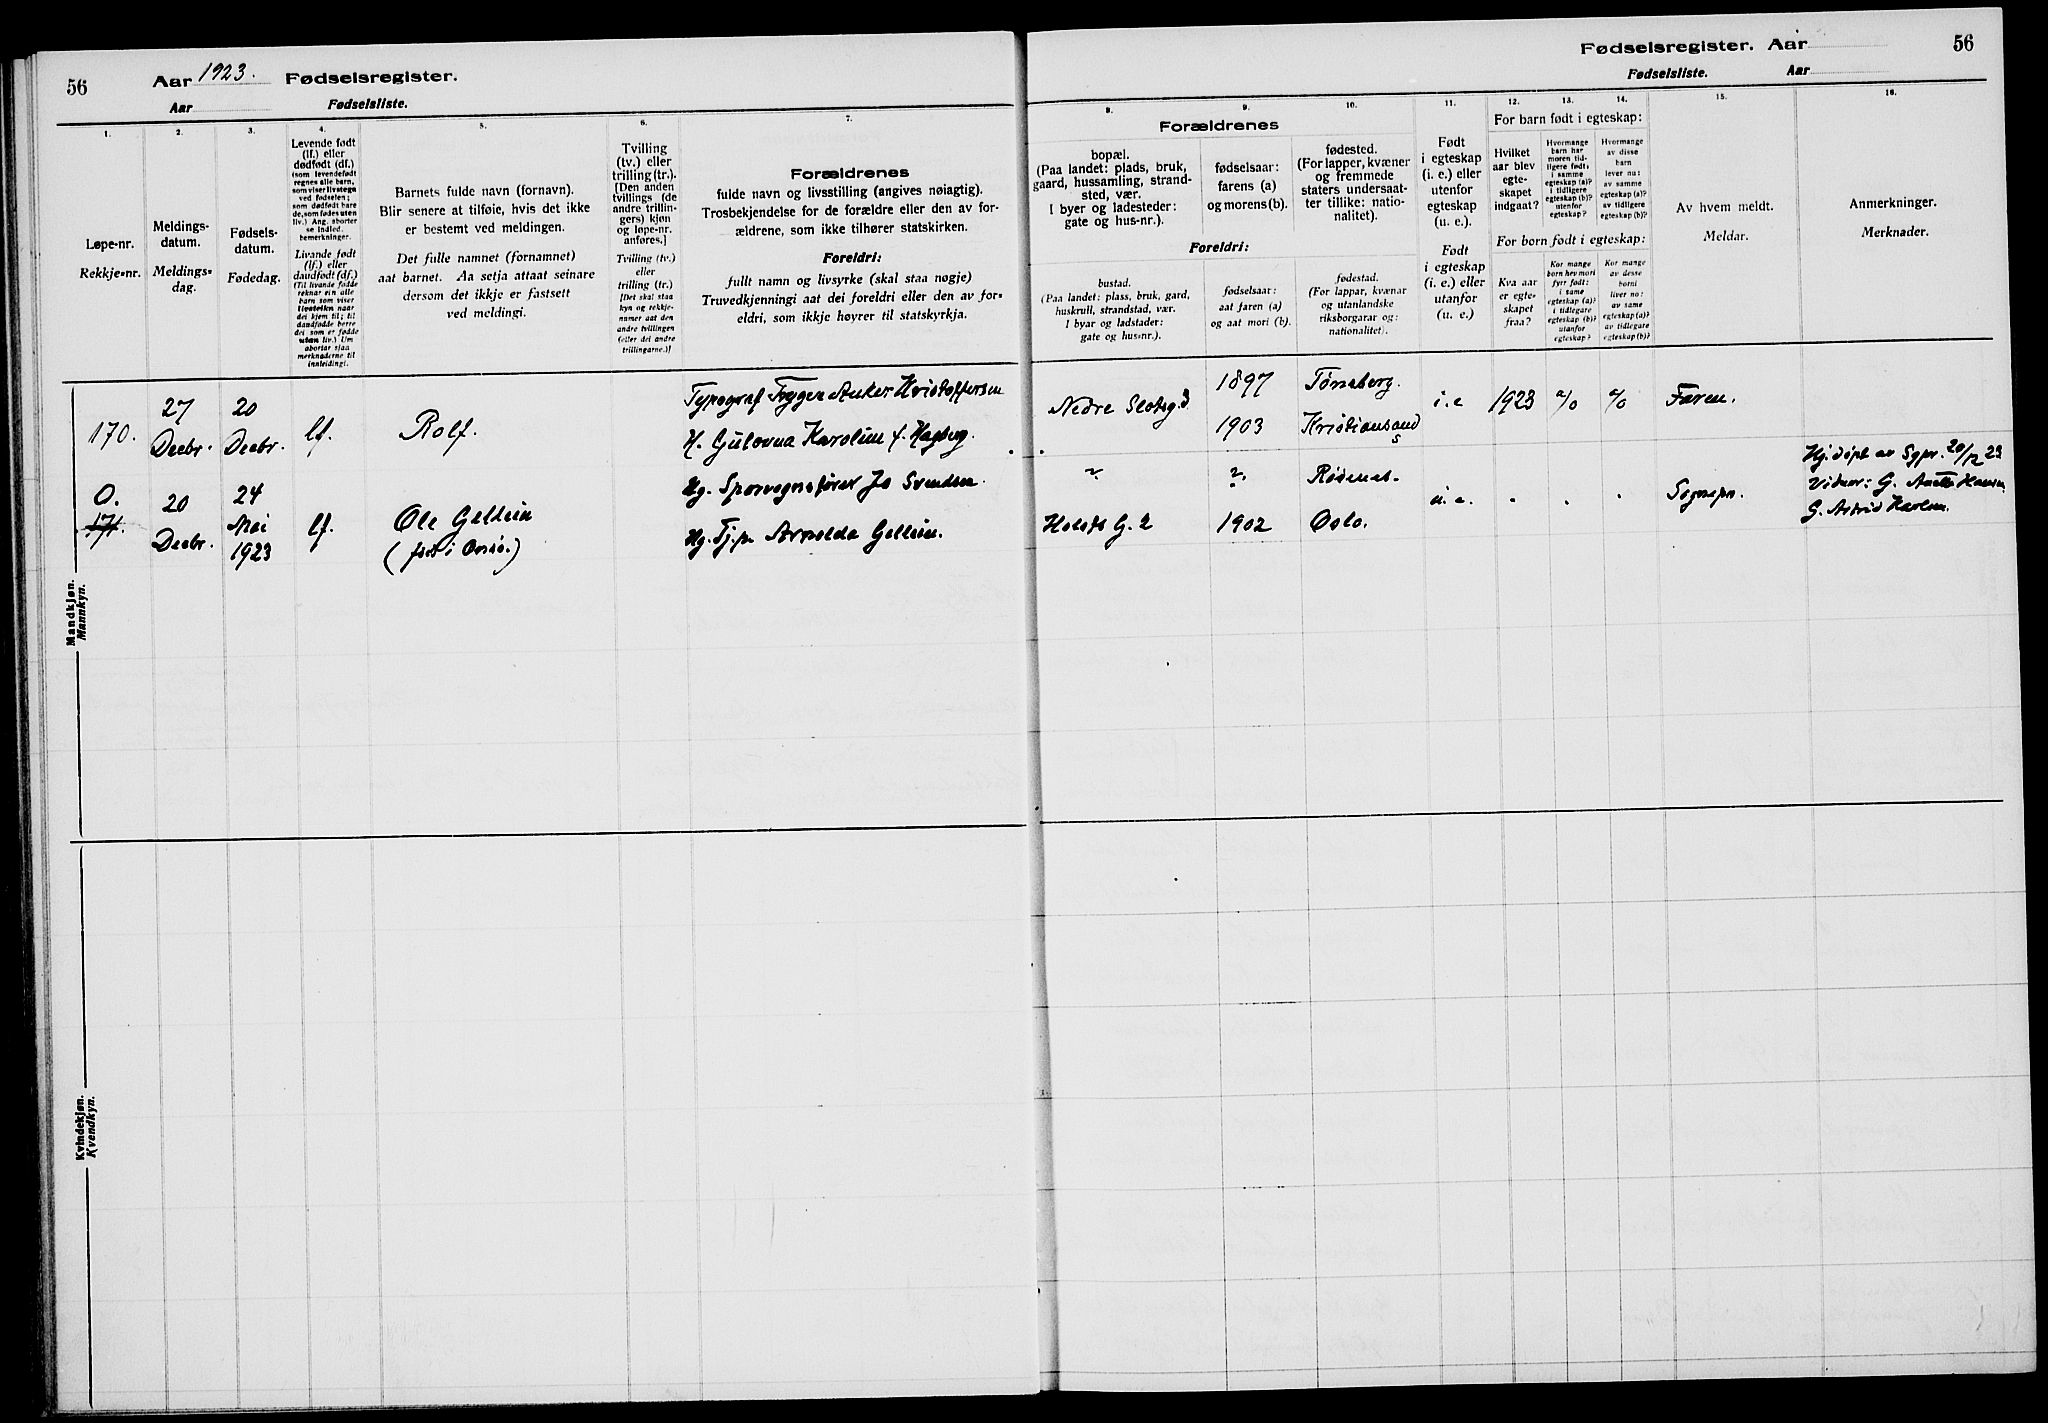 56
Aar 1923. Fødselsregister.
Aar Fødselsliste.
1.
Løpe-nr.
Rekkje-nr.
2.
Meldings-
datum.
Meldings-
dag.
3.
Fødsels-
datum.
Fødedag.
4.
Levende født
(lf.) eller
dødfødt (df.)
(som levendefødt
regnes alle barn,
som viser livstegn
ved fødselen;
som dødfødt bare
de, som fødes uten
liv.) Ang. aborter
se indled.
bemerkninger.
Livande født
(lf.) eller
daudfødt (df.)
(Til livande fødde
reknar ein alle
born som viser
livsteikn naar
dei kjem til; til
daudfødde berre
dei som er fødde
utan liv.) Um
abortar sjaa
merknaderne til
innleidingi.
5.
Barnets fulde navn (fornavn).
Blir senere at tilføie, hvis det ikke
er bestemt ved meldingen.
Det fulle namnet (fornamnet)
aat barnet. Aa setja attaat seinare
dersom det ikkje er fastsett
ved meldingi.
6.
Tvilling
(tv.) eller
trilling (tr.).
[Den anden
tvillings (de
andre trillin-
gers) kjøn
og løpe-nr.
anføres.]
Tvilling (tv.)
eller
trilling (tr.)
[Det skal staa
kyn og rekkje-
numer aat den
andre tvillingen
(eller dei andre
trillingarne.)]
7.
Forældrenes
fulde navn og livsstilling (angives nøiagtig).
Trosbekjendelse for de forældre eller den av for-
ældrene, som ikke tilhører statskirken.
Foreldri:
fullt namn og livsyrke (skal staa nøgje)
Truvedkjenningi aat dei foreldri eller den av for-
eldri, som ikkje høyrer til statskyrkja.
Mandkjøn.
Mannkyn.
170.
27
Decbr.
20
Decbr.
lf.
Rolf.
Typograf Trygve Anker Kristoffersen
H. Gulovna Karoline f. Hagberg.
O.
171.
20
Decbr.
24
Mai
1923
lf.
Ole Gellein
(født i Onsø.)
Ug. Sporvognsfører Jo Svendsen.
Ug. Tj.p. Arnolda Gellein.
Kvindekjøn.
Kvendkyn.
Fødselsregister. Aar 56
Fødselsliste. Aar
Forældrenes
8.
bopæl.
(Paa landet: plads, bruk,
gaard, hussamling, strand-
sted, vær.
I byer og ladesteder:
gate og hus-nr.).
9.
fødselsaar:
farens (a)
og morens (b).
10.
fødested.
(For lapper, kvæner
og fremmede
staters undersaat-
ter tillike: natio-
nalitet).
Foreldri:
bustad.
(Paa landet: plass, bruk, gard,
huskrull, strandstad, vær.
I byar og ladstader:
gate og hus-nr.).
fødselsaar:
aat faren (a)
og aat mori (b).
fødestad.
(For lappar, kvænar
og utanlandske
riksborgarar og:
nationalitet).
11.
Født
i egteskap
(i. e.) eller
utenfor
egteskap
(u. e.).
Født
i egteskap
(i. e.) eller
utanfor
(u. e.)
12. 13. 14.
For barn født i egteskap:
Hvilket
aar blev
egte-
skapet
indgaat?
Hvormange
barn har
moren tid-
ligere født,
i samme
egteskap (a)?
i tidligere
egteskap (b)?
utenfor
egteskap?
Hvormange
av disse
barn
lever nu:
av samme
egteskap (a)?
av tidligere
egteskap (b)?
For born født i egteskap:
Kva aar
er egte-
skapet
fraa?
Kor mange
born hev mori
fyrr født:
i same
egteskap (a)?
i tidlegare
egteskap (b)?
utanfor
egteskap?
Kor mange
av desse
borni
liver no:
av same
egteskap (a)?
av tidlegare
egteskap (b)?
15.
Av hvem meldt.
Meldar.
16.
Anmerkninger.
Merknader.
Nedre Slotsg. 3
1897
1903
Tønsberg.
Kristiansand
S
i. e
1923
a/0
a/0
Faren.
?
?
Rødenes.
Holsts G. 2
1902
Oslo.
u. e.
Sognepr.
Hj.døpt av Sgpr. 20/12 23
Vidner: G. Anette Hansen
G. Astrid Karlsen.